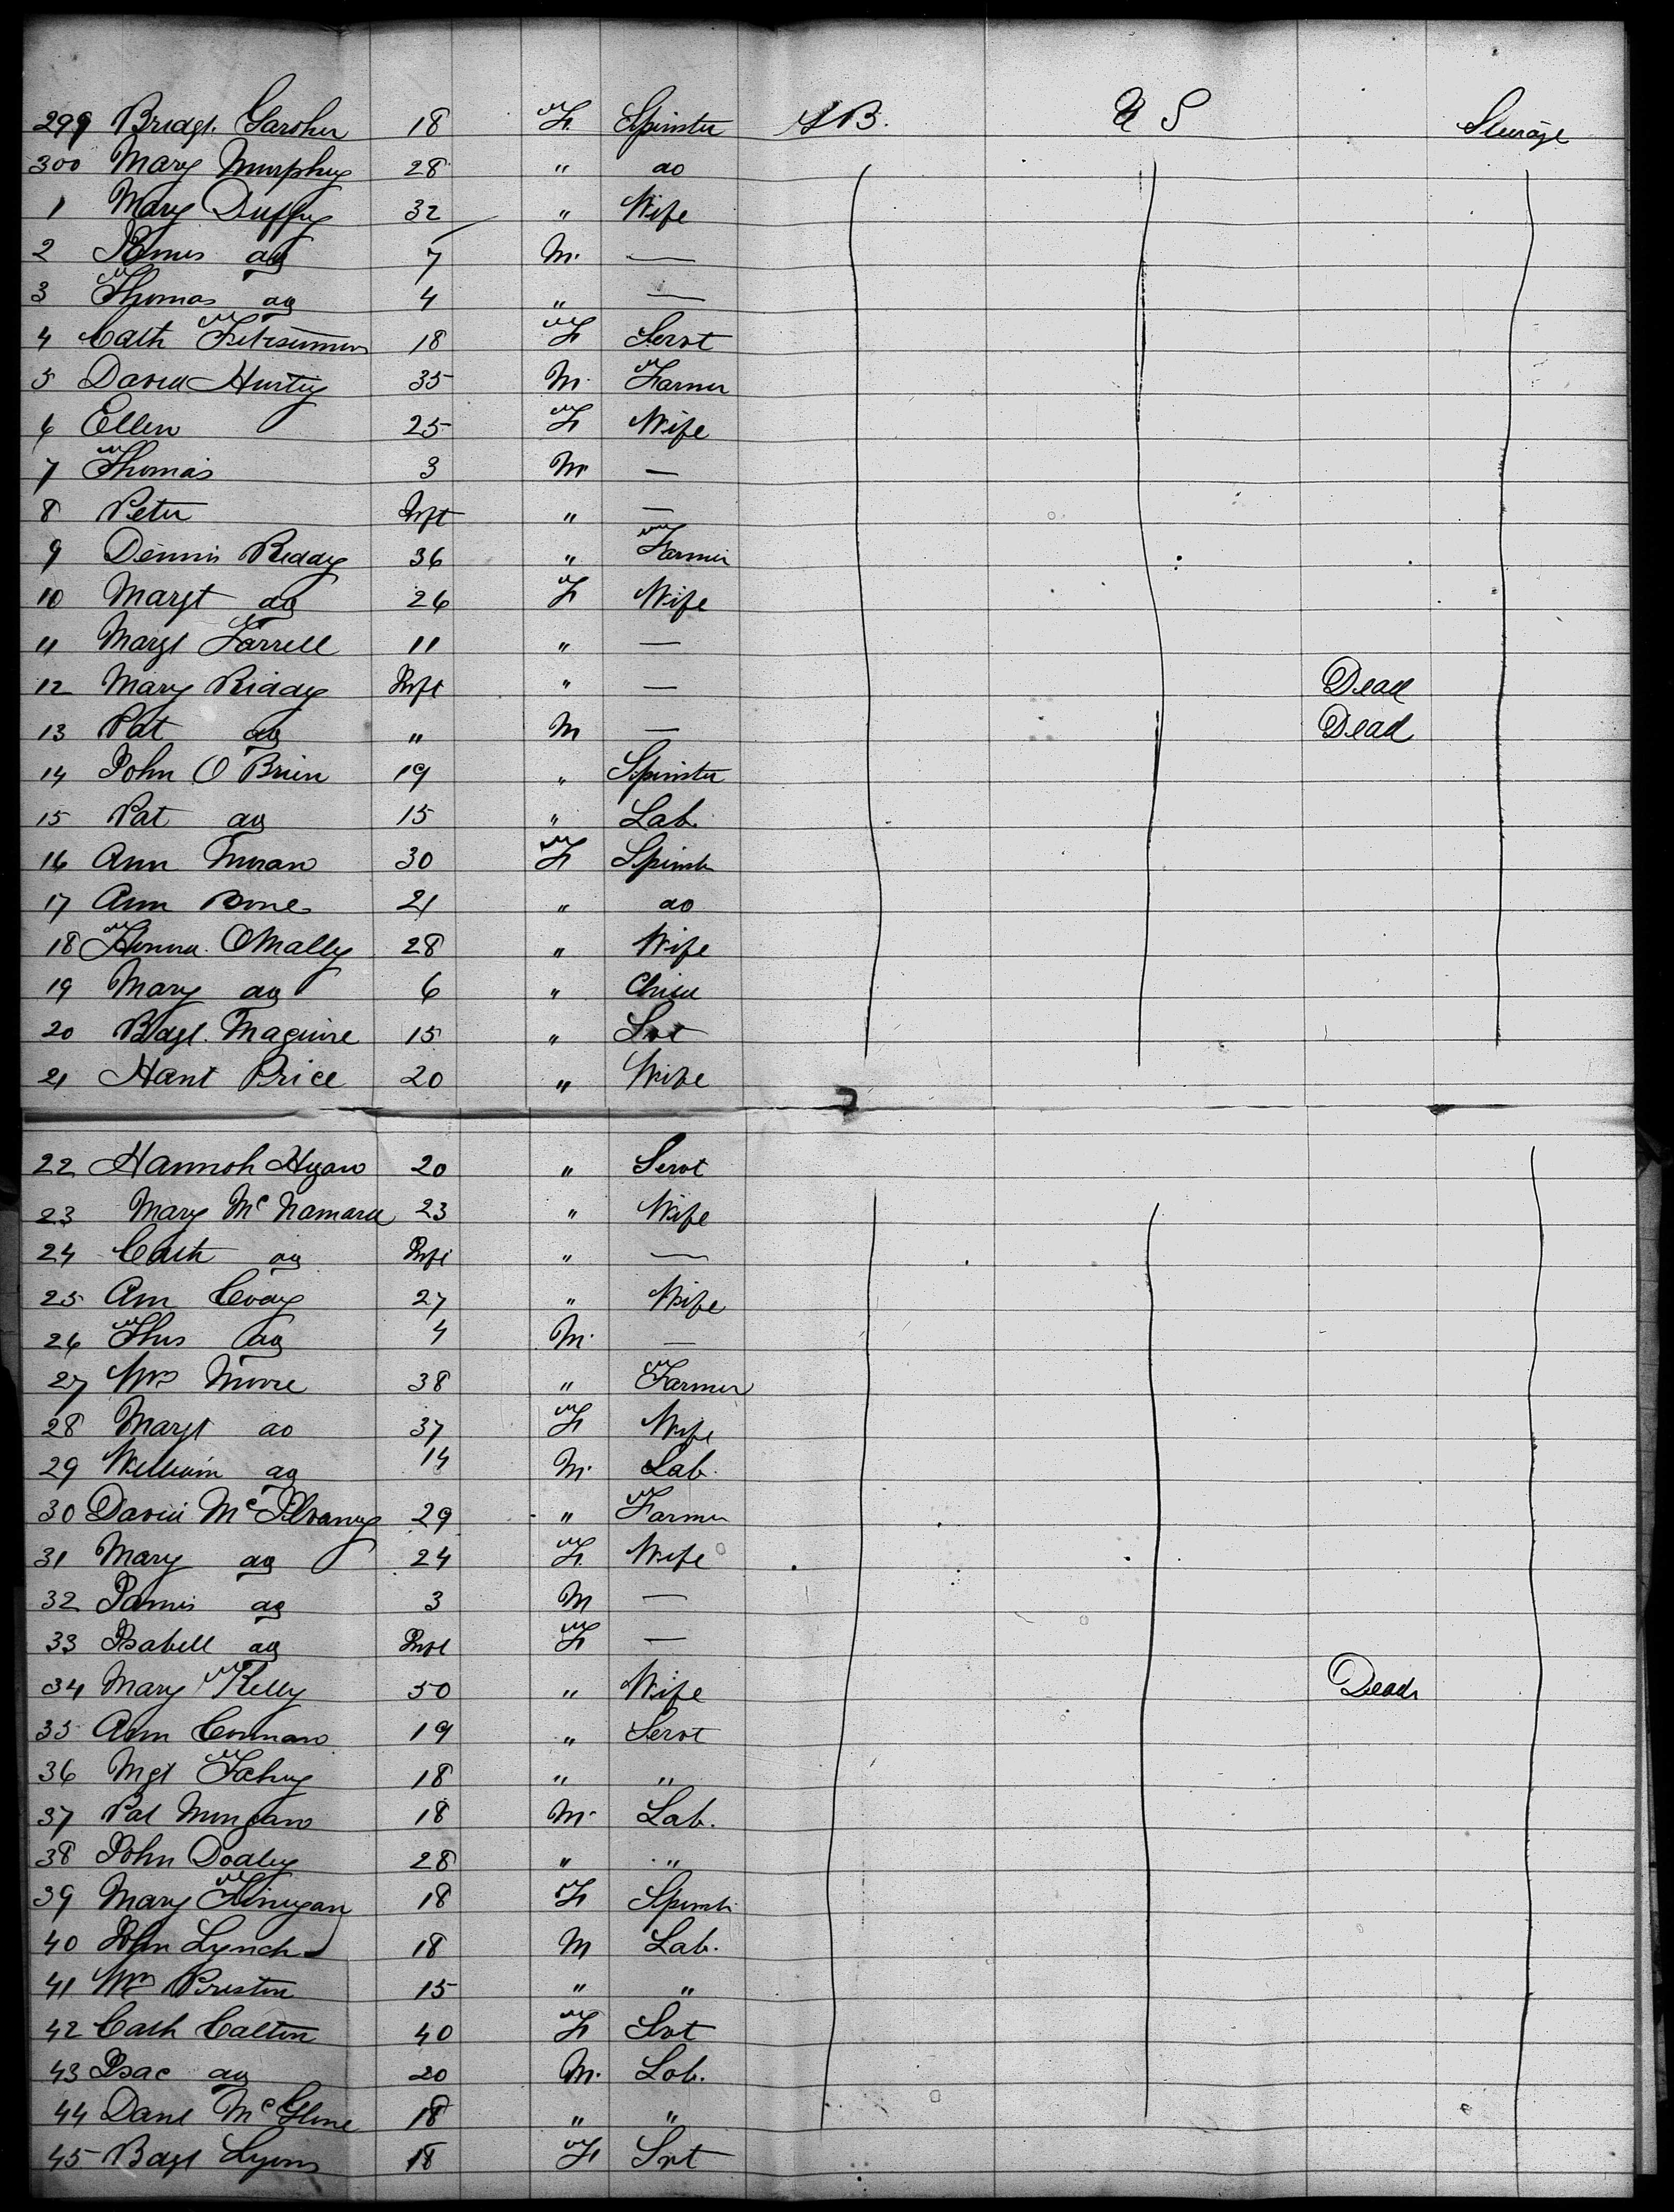 299 Bridgt. Garoher 18 F. Spinster G B. U S Steerage
300 Mary Murphy 28 " do
1 Mary Duffy 32 " Wife
2 James do 7 M. —
3 Thomas do 4 " —
4 Cath Fitzsimmons 18 F Servt
5 David Hurty 35 M. Farmer
6 Ellen 25 F Wife
7 Thomas 3 M. —
8 Peter Inft " —
9 Dennis Reddy 36 " Farmer
10 Margt do 26 F Wife
11 Margt Farrell 11 " —
12 Mary Riddy Inft " — Dead
13 Pat do " M — Dead
14 John O Brien 19 " Spinster
15 Pat do 15 " Lab.
16 Ann Moran 30 F Spinstr
17 Ann 21 " do
18 Honna. OMally 28 " Wife
19 Mary do 6 " Child
20 Bdgt. Maguire 15 " Svt
21 Hant Price 20 " Wife
22 Hannoh Hyan 20 " Servt
23 Mary Mc Namara 23 " Wife
24 Cath do Inft " —
25 Ann Cody 27 " Wife
26 Thos do 4 M. —
27 Wm Moore 38 " Farmer
28 Margt do 37 F Wife
29 William do 14 M. Lab.
30 David Mc Ilvaney 29 " Farmer
31 Mary do 24 F. Wife
32 James do 3 M —
33 Isabell do Inft F —
34 Mary Kelly 50 " Wife Dead
35 Ann Connan 19 " Servt
36 Mgt Fahey 18 " "
37 Pat Mungan 18 M. Lab.
38 John Dooley 28 " "
39 Mary Finigan 18 F Spinstr
40 John Lynch 18 M Lab.
41 Wm Preston 15 " "
42 Cath Calton 40 F Svt
43 Isac do 20 M. Lab.
44 Danl Mc Glone 18 " "
45 Bdgt Lyons 18 F Svt